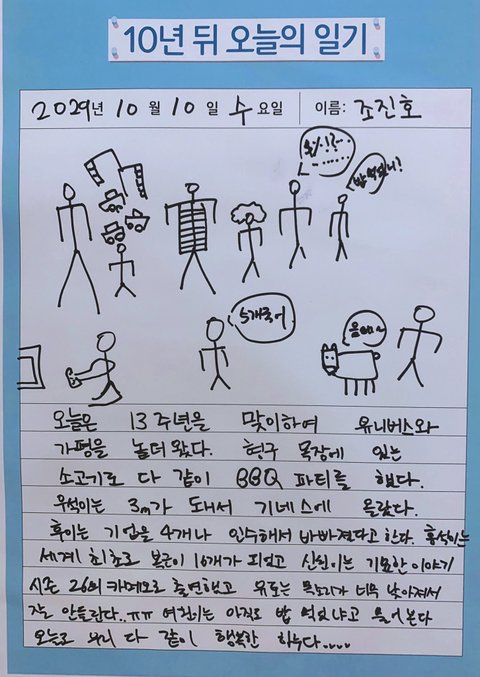 10년 뒤 오늘의 일기
2029년 10월 10일 수요일 이름: 조진호
밥 먹었니?
5개국어
음메~
오늘은 13주년을 맞이하여 유니버스와
가평을 놀러 왔다. 현구 목장에 있는
소고기로 다 같이 BBQ 파티를 했다.
우석이는 3m가 돼서 기네스에 올랐다.
후이는 기업을 4개나 인수해서 바빠졌다고 한다. 홍석이는
세계 최초로 복근이 16개가 되었고 신원이는 기묘한 이야기
시즌 26의 카메오로 출연했고 유토는 목소리가 너무 낮아져서
잘 안들린다..ㅠㅠ 여원이는 아직도 밥 먹었냐고 물어본다
오늘도 우리 다 같이 행복한 하루다....